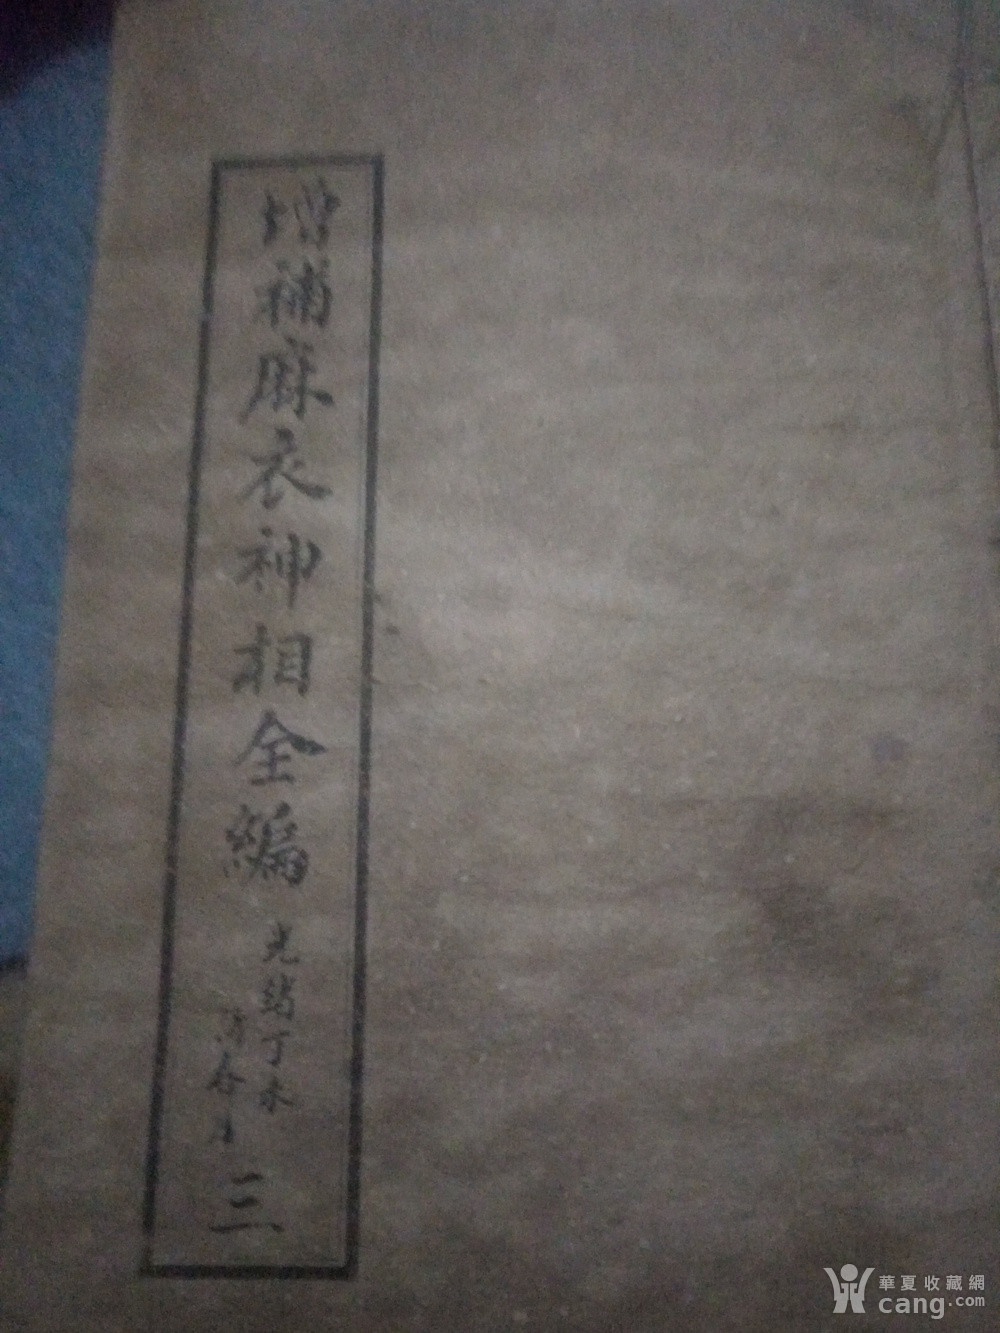 增補麻衣神相全編
光緒丁未
春月
三
華夏收藏網
cang.com